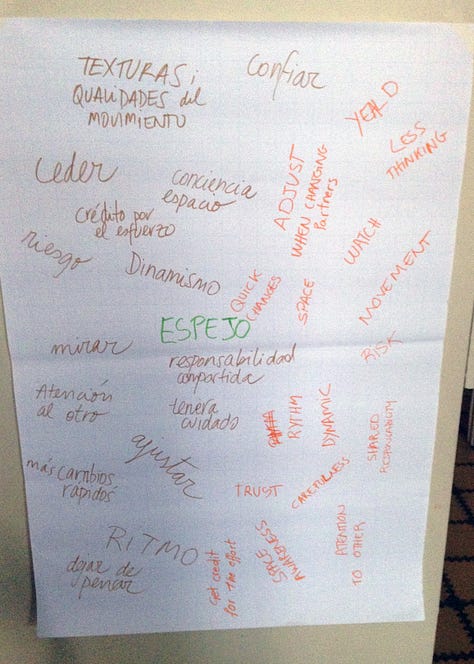 TEXTURAS i
QUALIDADES del
MOVIMIENTO
confiar
YEALD
LESS
THINKING
ceder
conciencia
espacio
ADJUST
WHEN CHANGING
Partners
crédito por
el esfuerzo
WATCH
riesgo
Dinamismo
QUICK
CHANGES
SPACE
MOVEMENT
ESPEJO
mirar
responsabilidad
compartida
RISK
Atención
al otro
tener
cuidado
RYTHM
DYNAMIC
SHARED
RESPONSABILITY
ajustar
más cambios
rapidos
TRUST
CAREFULNESS
RITMO
dejar de
pensar
Get credit
for the effort
SPACE
AWARENESS
ATENTION
TO OTHER